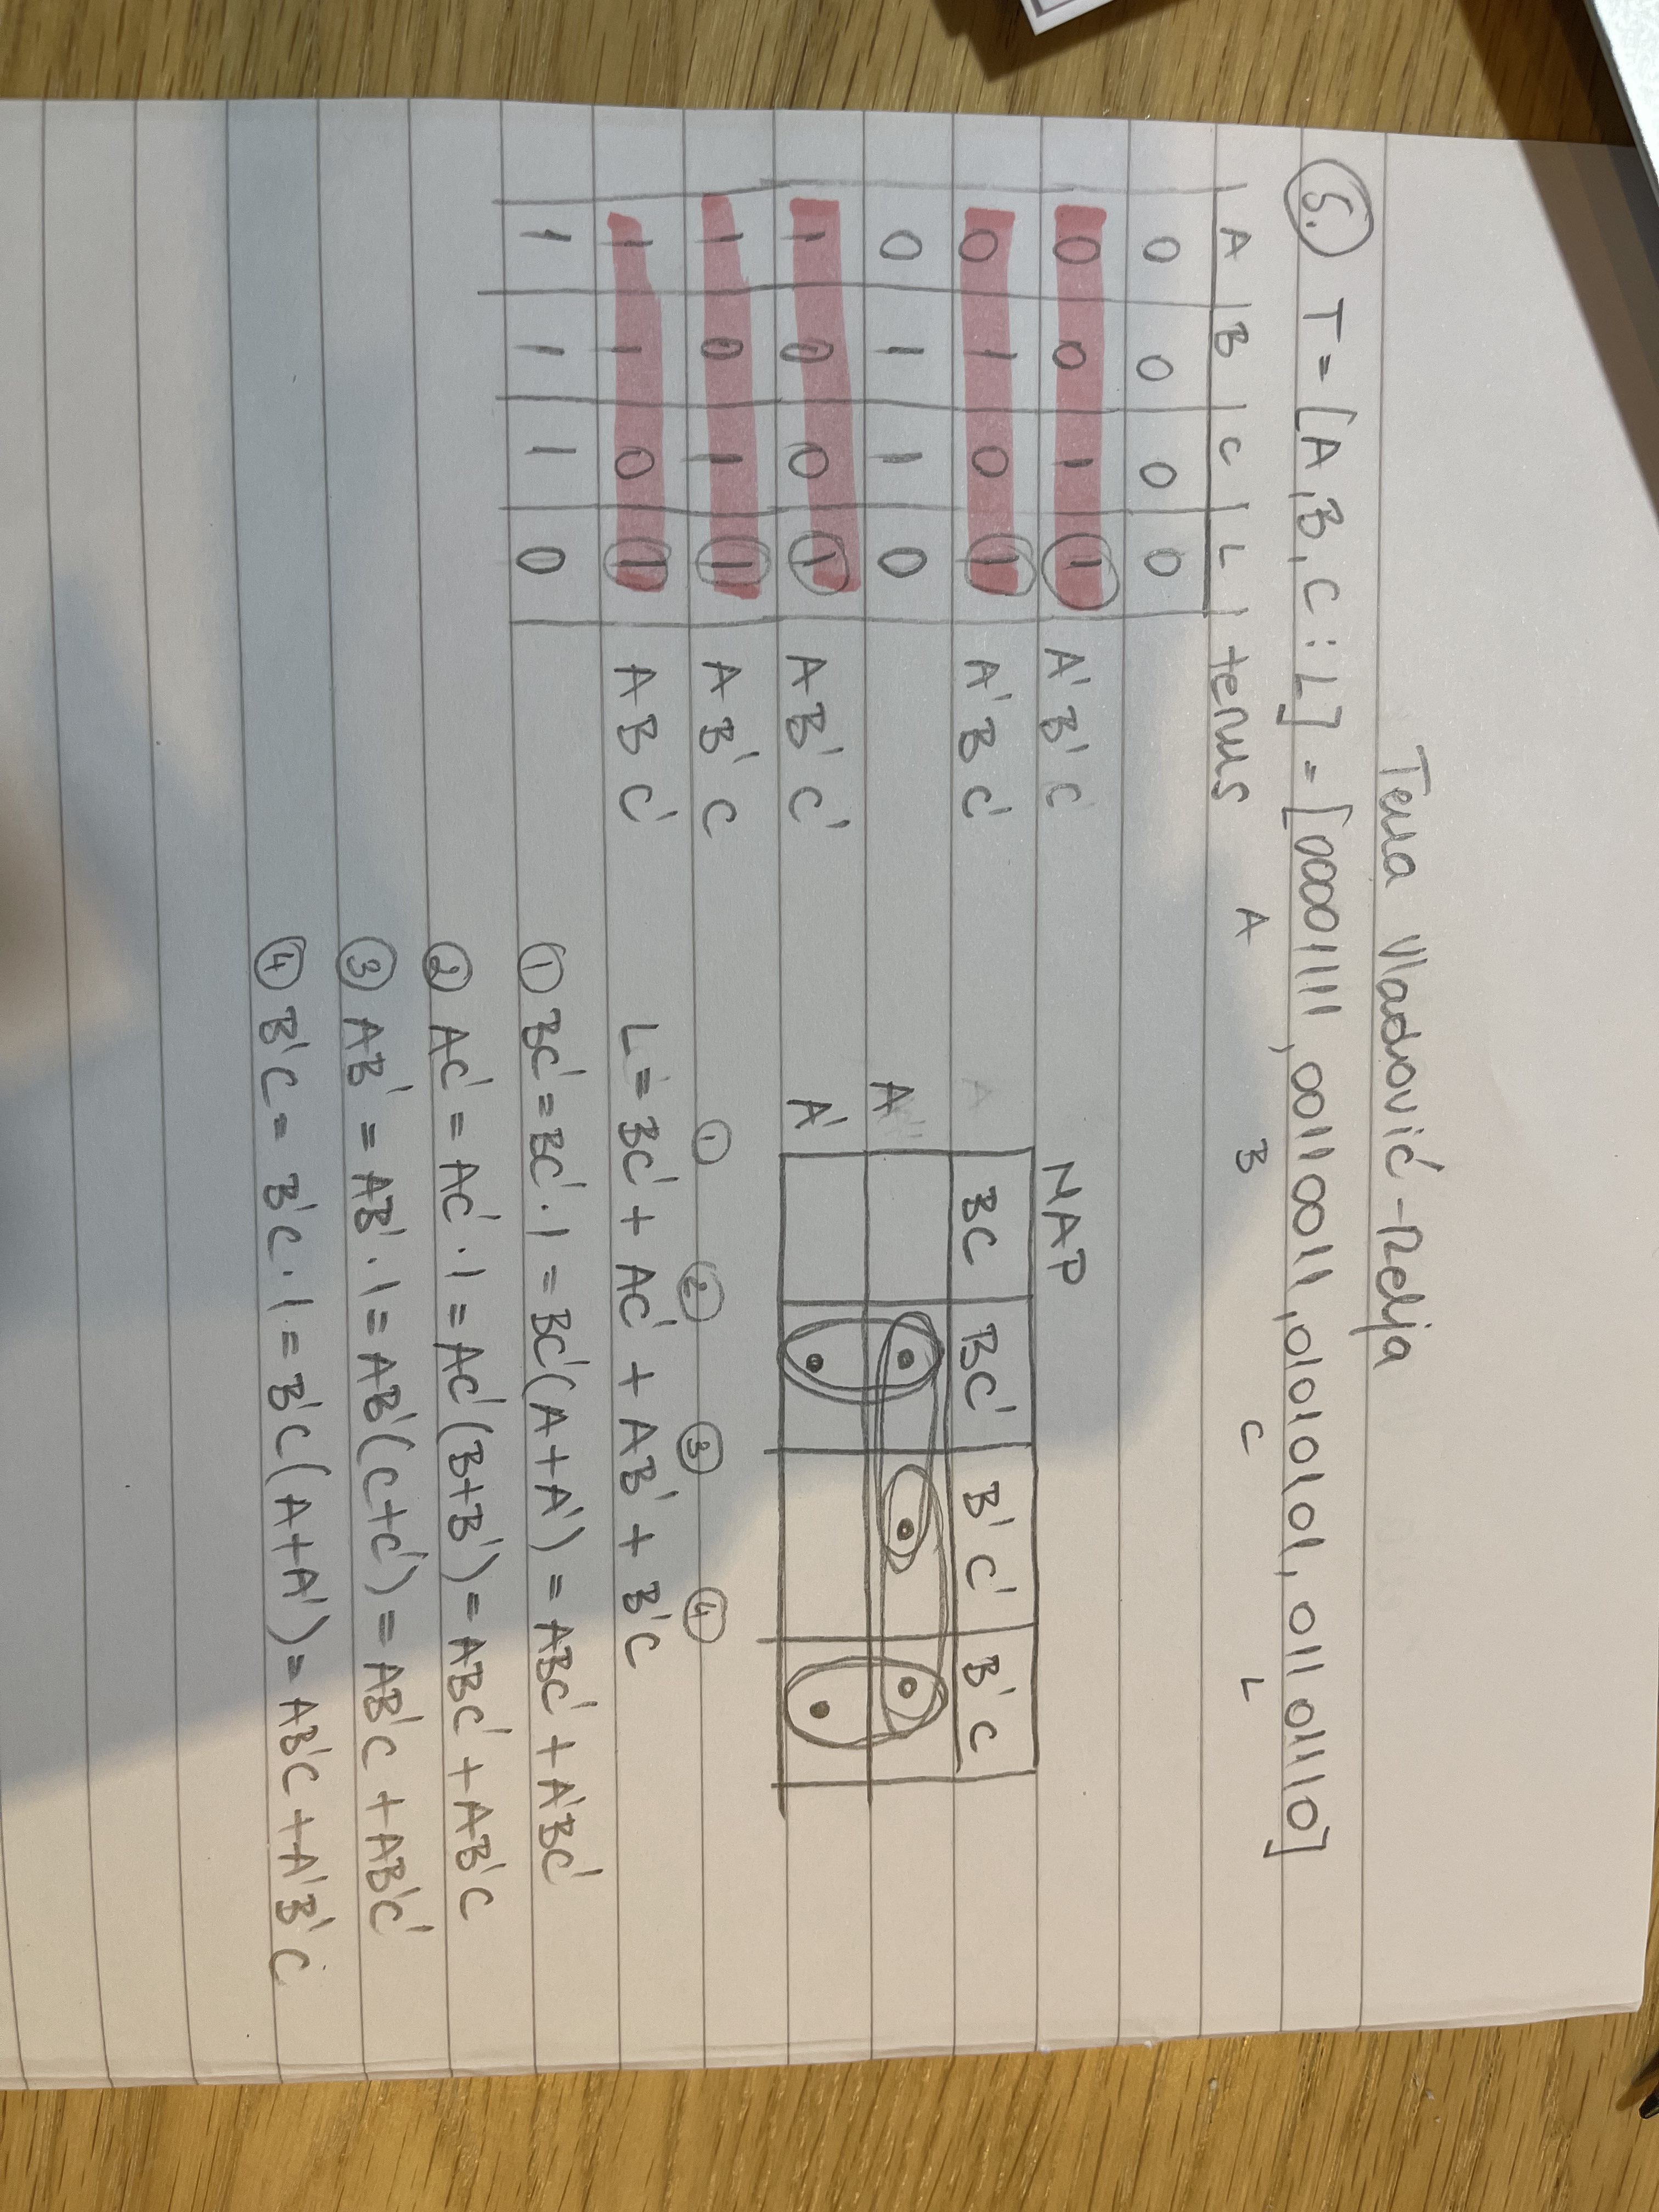 Tena Vladović-Relja
5. T = [A, B, C : L] = [00001111, 00110011, 01010101, 01101110]
A B C L
A B C L terms
0 0 0 0
0 0 1 1 A'B'C
0 1 0 1 A'BC'
0 1 1 0
1 0 0 1 AB'C'
1 0 1 1 AB'C
1 1 0 1 ABC'
1 1 1 0
MAP
BC BC' B'C' B'C
A
A'
① ② ③ ④
L = BC' + AC' + AB' + B'C
① BC' = BC' · 1 = BC'(A+A') = ABC' + A'BC'
② AC' = AC' · 1 = AC'(B+B') = ABC' + AB'C
③ AB' = AB' · 1 = AB'(C+C') = AB'C + AB'C'
④ B'C = B'C · 1 = B'C(A+A') = AB'C + A'B'C